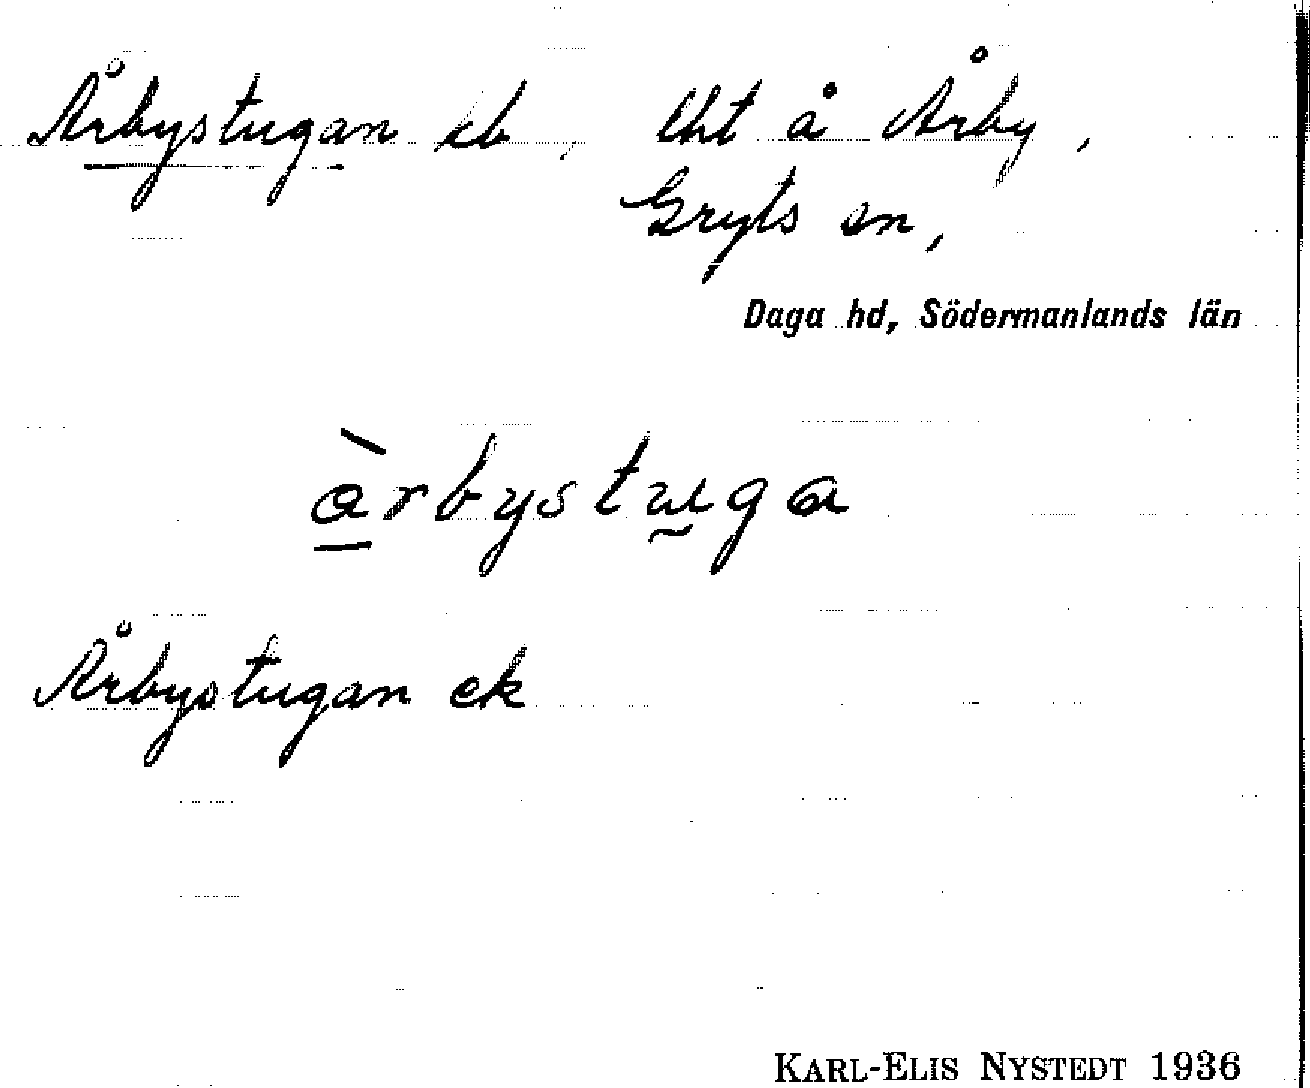 Årbystugan kb, lht å Årby,
Gryts sn,
Daga hd, Södermanlands län
àrbystuga
Årbystugan ek
KARL-ELIS NYSTEDT 1936